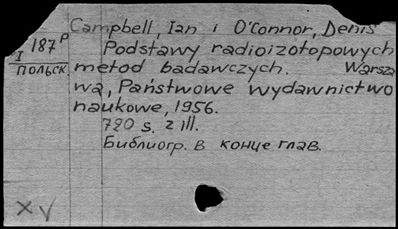 Campbell, Ian i O'Connor, Denis
187 р
I
польск.
Podstawy radioizotopowych
metod badawczych. Warsza
wa, Państwowe wydawnictwo
naukowe, 1956.
720 s. z Ill.
Библиогр. в конце глав.
XV